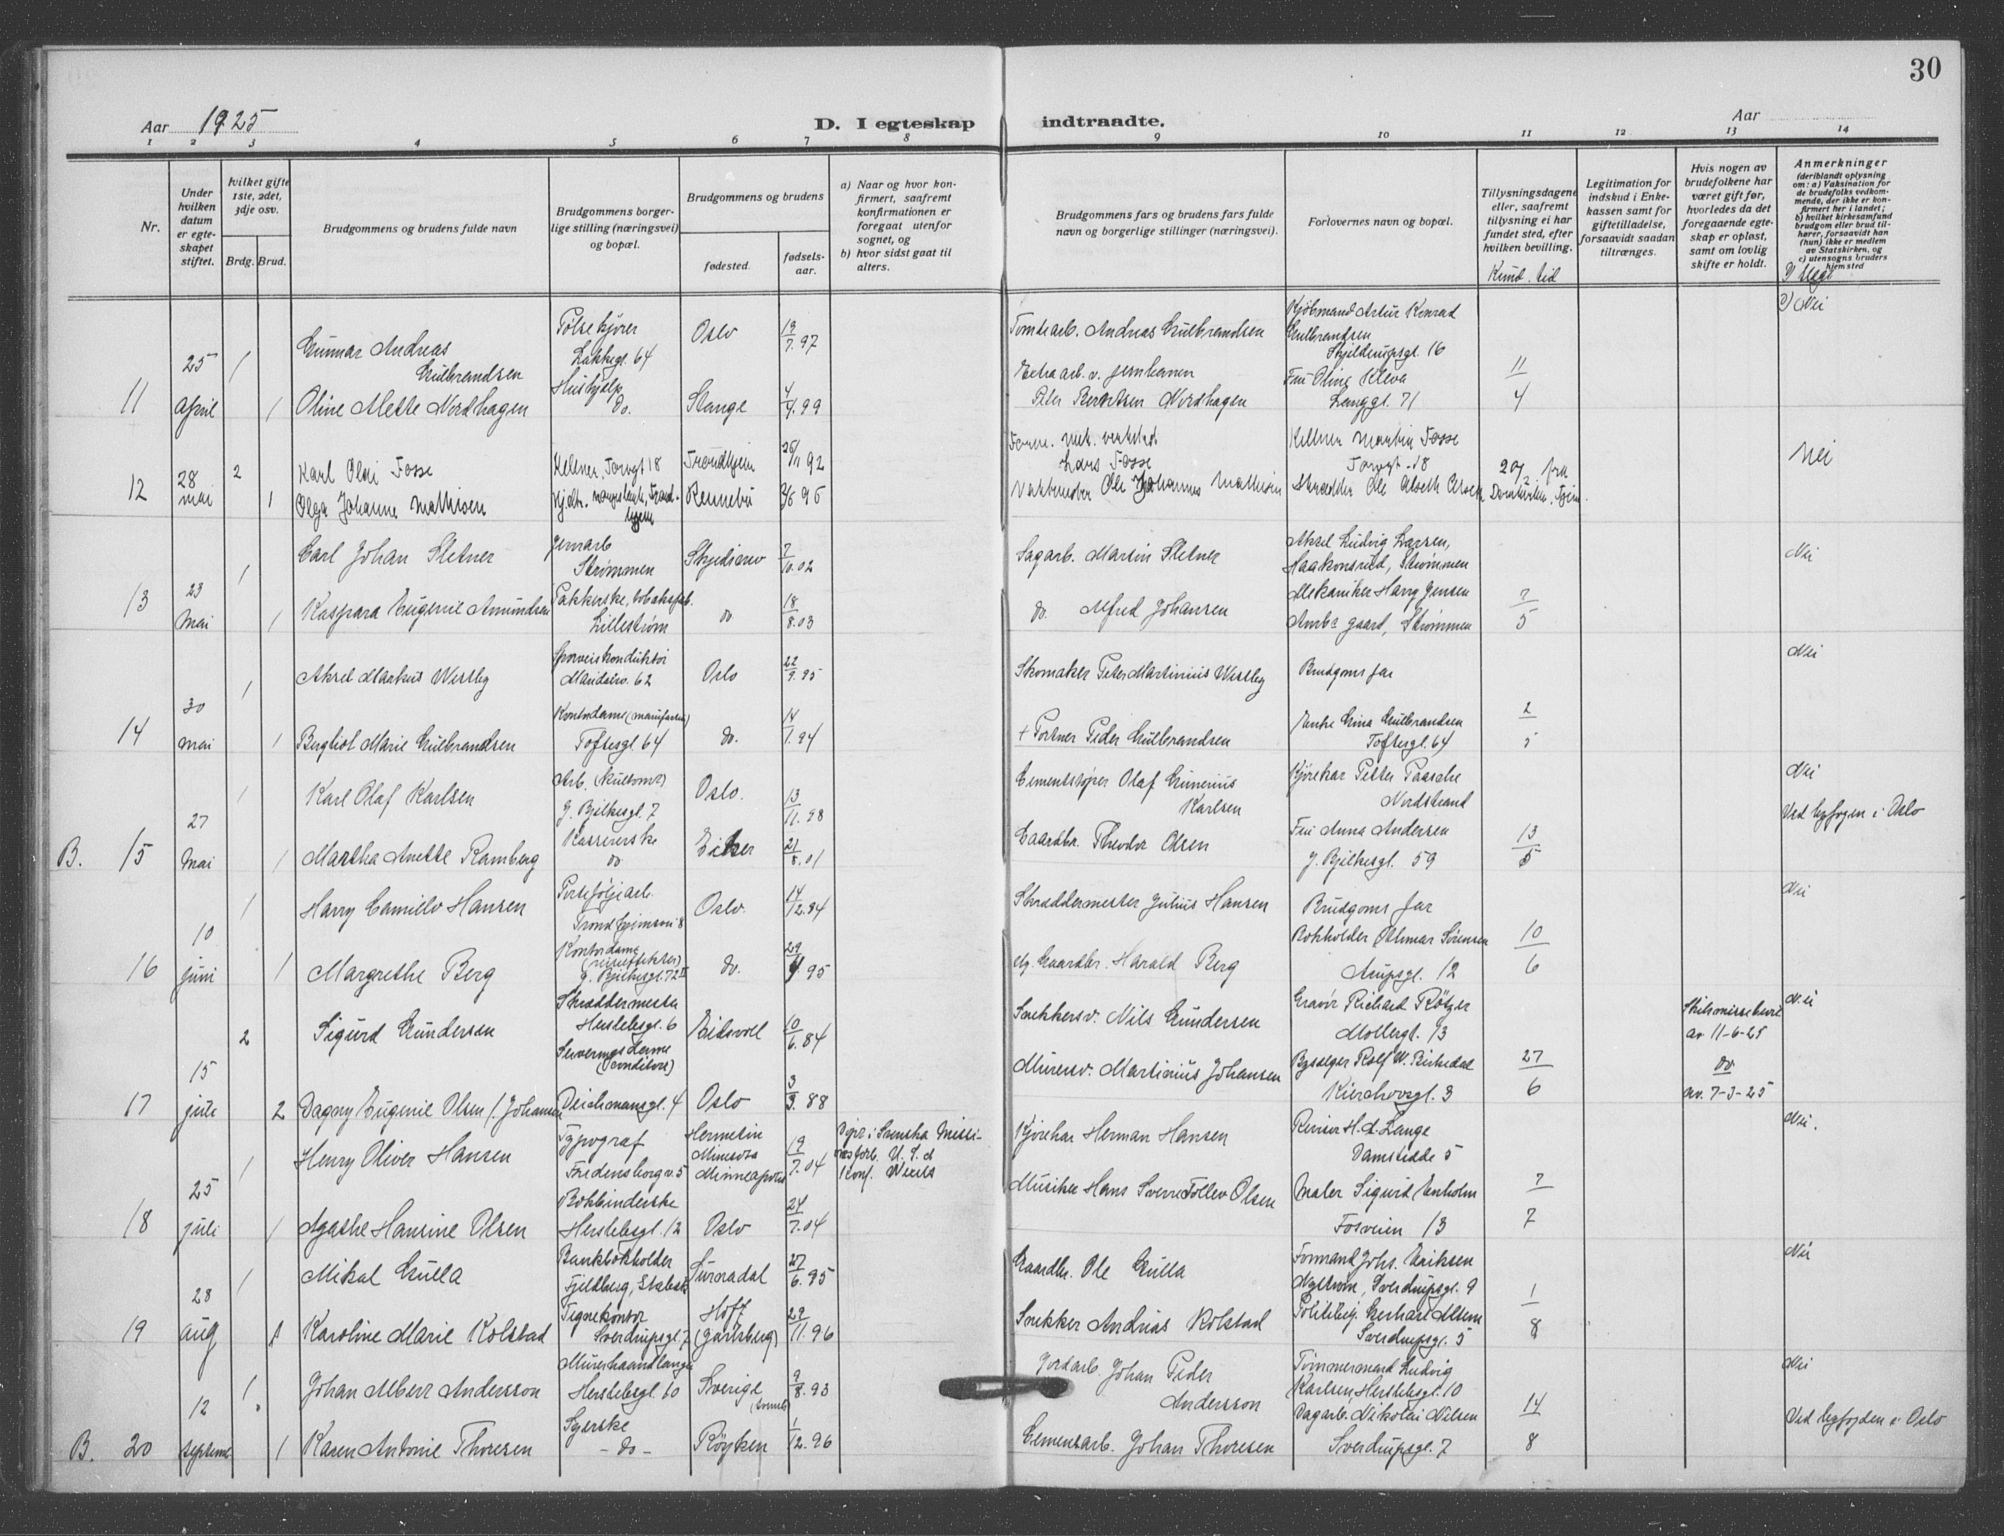 30
Aar 1925
D. I egteskap indtraadte.
Aar
1 2 3 4 5 6 7 8 9 10 11 12 13 14
Nr.
Under hvilken datum er egteskapet stiftet.
hvilket gifte 1ste, 2det, 3dje osv.
Brdg. Brud.
Brudgommens og brudens fulde navn
Brudgommens borgerlige stilling (næringsvei) og bopæl.
Brudgommens og brudens
fødested.
fødselsaar.
a) Naar og hvor konfirmert, saafremt konfirmationen er foregaat utenfor sognet, og
b) hvor sidst gaat til alters.
Brudgommens fars og brudens fars fulde navn og borgerlige stillinger (næringsvei).
Forlovernes navn og bopæl.
Tillysningsdagene eller, saafremt tillysning ei har fundet sted, efter hvilken bevilling.
Legitimation for indskud i Enkekassen samt for giftetilladelse, forsaavidt saadan tiltrænges.
Hvis nogen av brudefolkene har været gift før, hvorledes da det foregaaende egteskap er opløst, samt om lovlig skifte er holdt.
Anmerkninger
(deriblandt oplysning om: a) Vaksination for de brudefolks vedkommende, der ikke er konfirmert her i landet; b) hvilket kirkesamfund brudgom eller brud tilhører, forsaavidt han (hun) ikke er medlem av Statskirken, og c) utensogns bruders hjemsted
11 25 april 1 Gunnar Andreas Gulbrandsen Lakkegt. 64 Oslo 13/7. 97 Tomtearb. Andreas Gulbrandsen Kjøbmand Artur Konrad Gulbrandsen Skjeldrupsgt. 16 11/4 Nei
1 Oline Mette Nordhagen Hushjelp do. Stange 4/4. 99 Peter Berntsen Nordhagen Fru Oline Kleva Langgt. 71
12 28 mai 2 Karl Olai Fosse Kelner, Torvgt 18 Trondhjem 26/11 92 Lars Fosse Kelner Martin Fosse Torvgt. 18 Nei
1 Olga Johanne Mathisen Rennebu 96 Ole Johannes Mathisen Skrædder Ole
13 23 Mai 1 Carl Johan Sletner Jernarb Strømmen Skedsmo 7/10. 02 Sagarb. Martin Sletner Aksel Ludvig Larsen, Haakonsrud, Strømmen 7/5 Nei
1 Kaspara Eugenie Amundsen Lillestrøm do 18/8. 03 do Alfred Johansen Mekaniker Harry Jensen gaard, Strømmen
14 30 mai 1 Aksel Markus Westby Sporveiskonduktør 62 Oslo 22/9. 95 Skomaker Peter Martinius Westby Brudgoms far 2/5 Nei
1 Berghot Marie Gulbrandsen Kontordame Toftesgt. 64 do. 14/1. 94 + Portner Peder Gulbrandsen Enke Gina Gulbrandsen Toftesgt. 64
B. 15 27 Mai 1 Karl Olaf Karlsen Arb. J. Bjelkesgt. 7 Oslo. 13/11. 98 Cementstøper Olaf Gunerius Karlsen Kjørekar Petter Paasche Nordstrand 13/5 Nei
1 Martha Anette Ramberg Kassererske do Eiker 21/8. 01 Gaardbr. Theodor Olsen Fru Anna Andersen J. Bjelkesgt. 59 Ved byfogen i Oslo
16 10 juni 1 Harry Camillo Hansen Porteføljearb. Trondhjemsvei 8 Oslo. 14/12. 94 Skræddermester Julius Hansen Brudgoms far 10/6 Nei
1 Margrethe Berg Kontordame J. Bjelkesgt. 72 II do. 95 Gaardbr. Harald Berg Bokholder Othmar Sørensen Arupsgt. 12
17 15 2 Sigurd Gundersen Skræddermester Herslebsgt. 6 Eidsvoll 10/6. 84 Snekkersv. Nils Gundersen Gravør Richard Møllergt. 13 27/6 av 11-6-25 Nei
2 Dagny Eugenie Olsen f. Johansen Deichmansgt. 4 Oslo 3/3. 88 Murersv. Martinius Johansen Rolf W. Kierchovsgt. 3 do av. 7-3-25
18 25 juli 1 Henry Oliver Hansen Typograf Fredensborgv. 5 Minneapolis 19/7. 04 Døpt i Svenska U. S. a Konf. Kjørekar Herman Hansen Revisor H. d. Lange Damstedde 5 7/7 Nei.
1 Agathe Hansine Olsen Bokbinderske Herslebsgt. 12 Oslo 24/7. 04 Musiker Hans Sverre Tollev Olsen Maler Sigurd Enholm Fosveien 13
19 28 aug 1 Mikal Gulla Bankbokholder Fjeldberg, Surnadal 27/6. 95 Gaardbr. Ole Gulla Formand Johs. Eriksen Nystrøm, Sverdrupsgt. 9 1/8 Nei
1 Karoline Marie Kolstad Tegnekontor Sverdrupsgt. 7 Hoff (Jarlsberg) 29/11. 96 Snekker Andreas Kolstad Politibetj. Gerhard Sverdrupsgt. 5
B. 20 12 septemb. 1 Johan Albert Andersson Murerhaandlanger Herslebsgt. 10 Sverige 9/8. 93 Jordarb. Johan Peder Andersson Tømmermand Ludvig Karlsen Herslebsgt. 10 14/8 Nei
1 Karen Antonie Thoresen Syerske - do - Røyken 1/12. 96 Cementarb. Johan Thoresen Dagarb. Nikolai Nilsen Sverdrupsgt. 7 Ved byfogden i Oslo